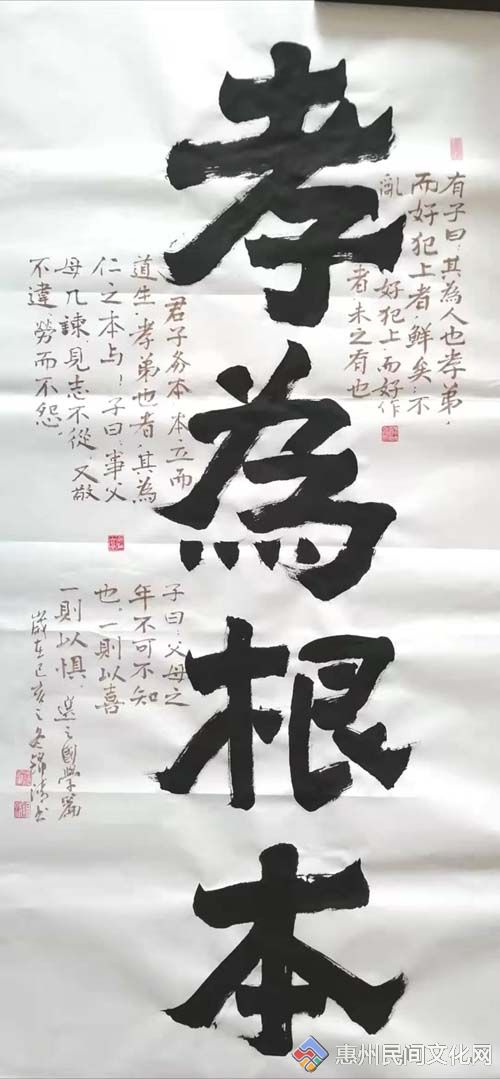 孝為根本
有子曰：其為人也孝弟，
而好犯上者，鮮矣不
好犯上而好作
亂
者未之有也
君子务本本立而
道生，孝弟也者，其為
仁之本与！子曰：事父
母几諫，見志不從，又敬
不違，勞而不怨。
子曰：父母之
年不可不知
也，一則以喜
一則以惧，
選之國學篇
歲在己亥之冬錦清书
惠州民间文化网